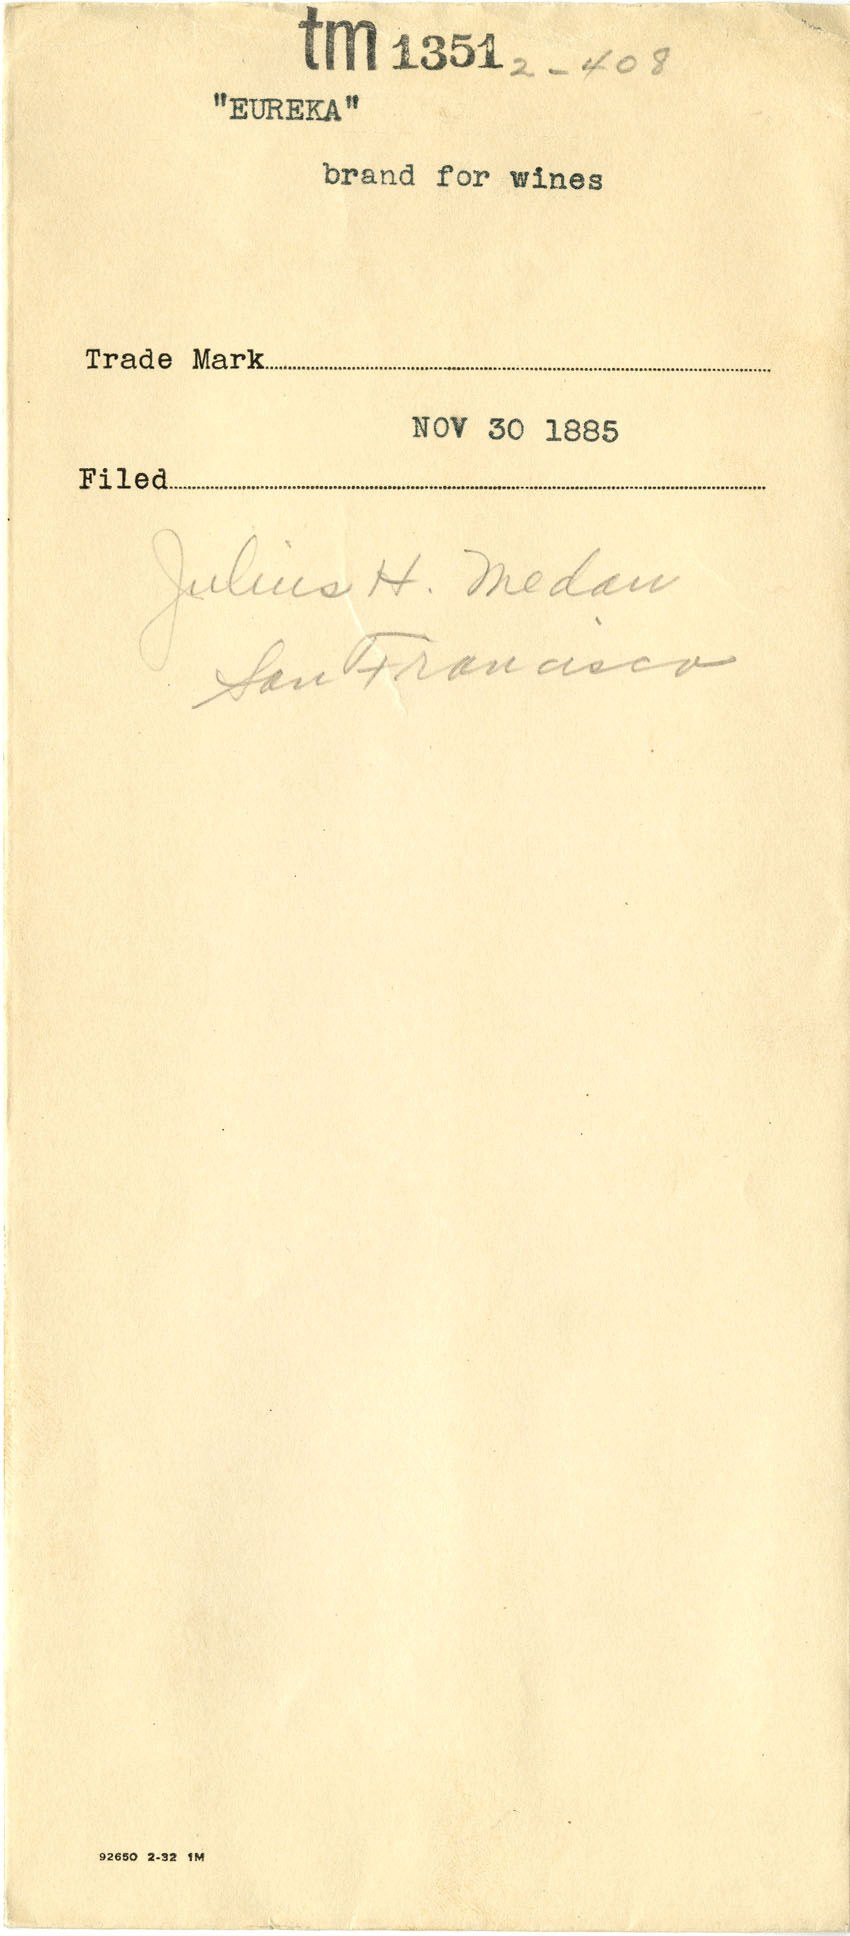 tm 1351 2-408
"EUREKA"
brand for wines
Trade Mark
NOV 30 1885
Filed
Julius H. Medau
San Francisco
92650 2-32 1M